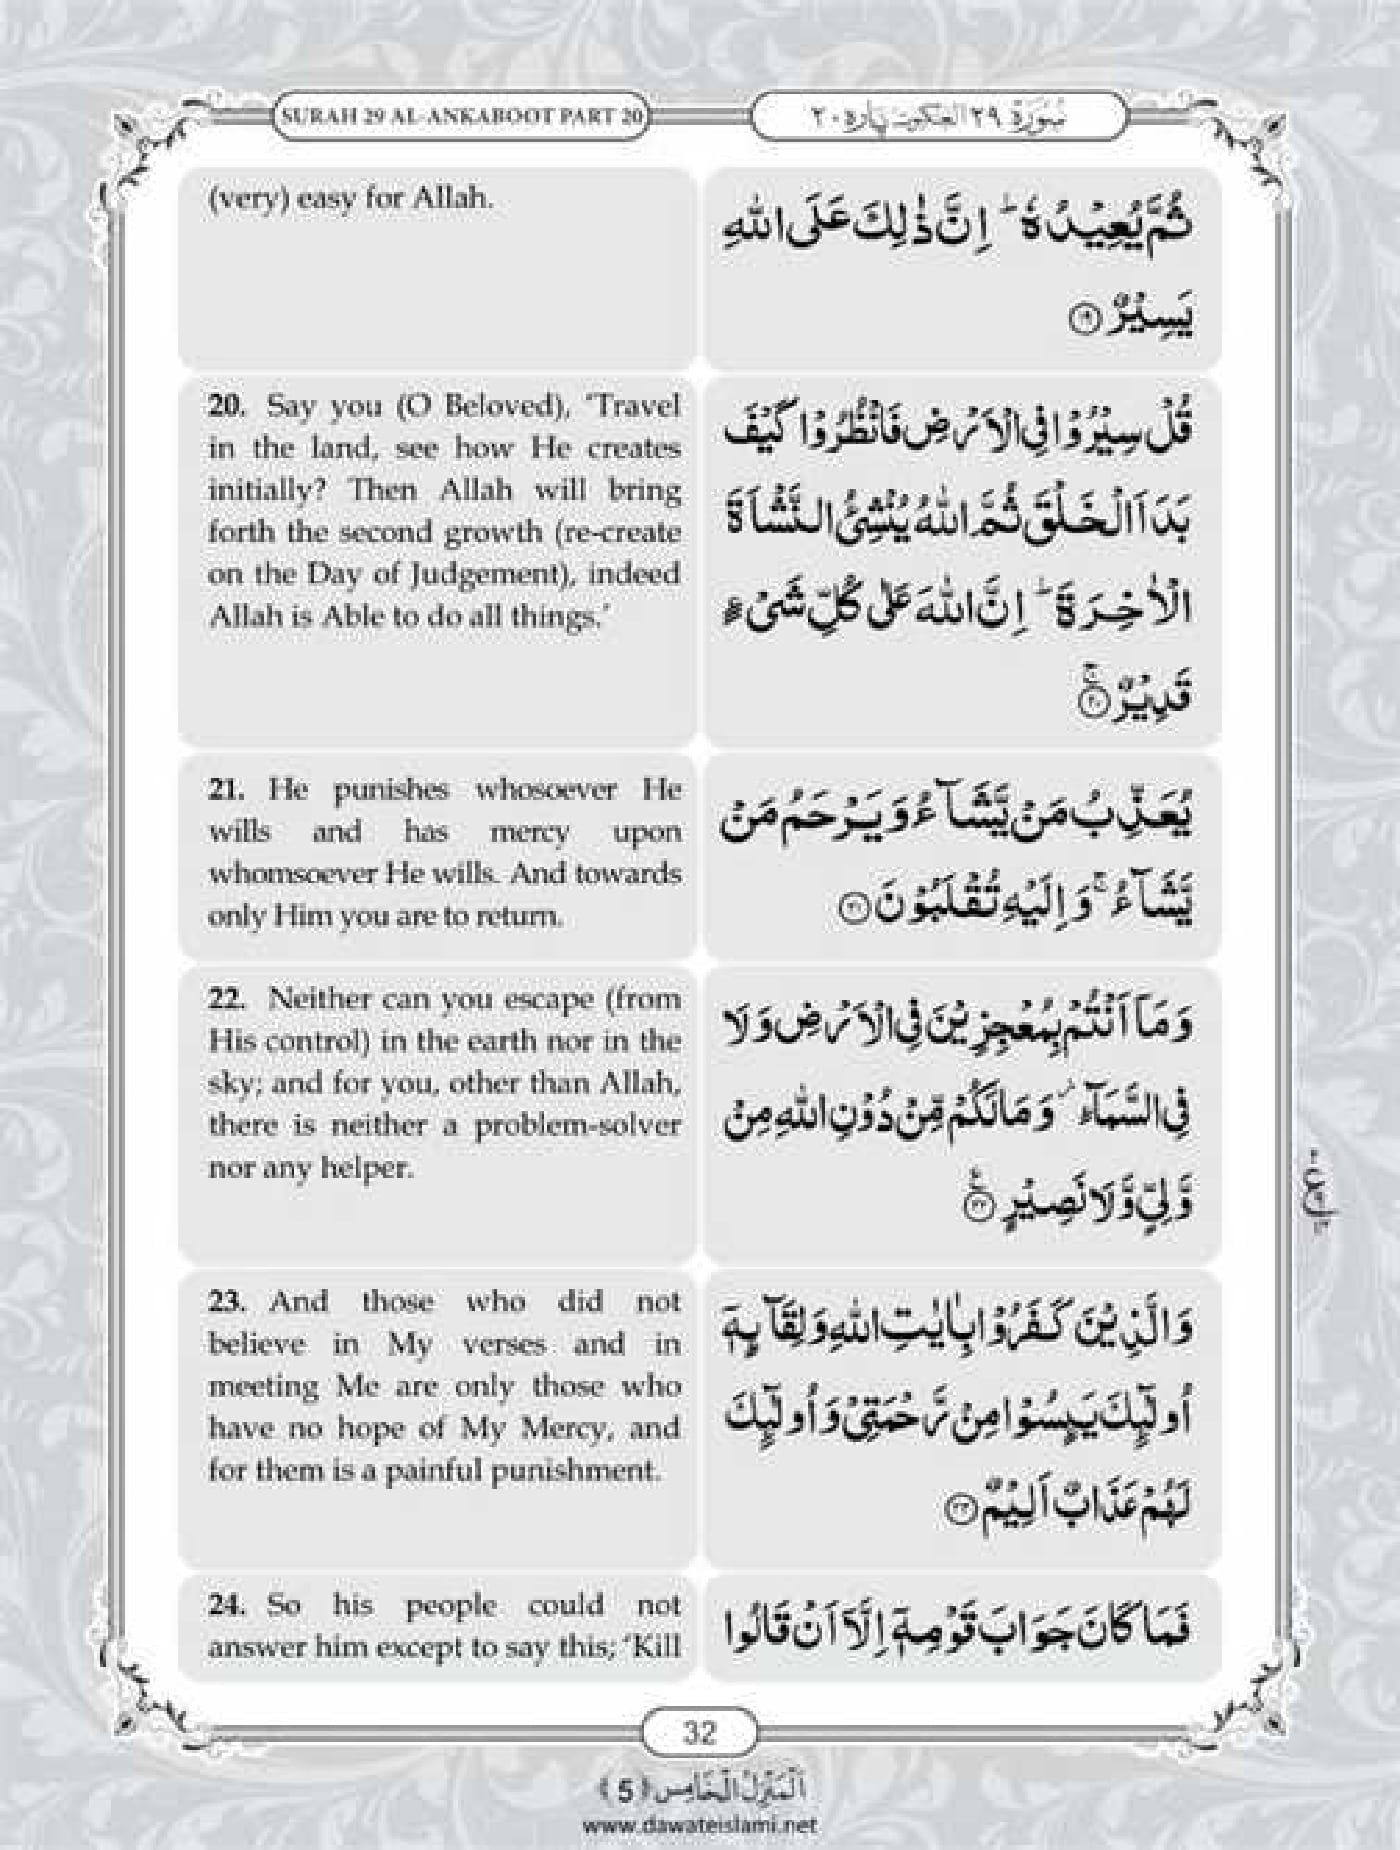 SURAH 29 AL-ANKABOOT PART 20
سُوْرَةُ ٢٩ العنكبوت پاره ٢٠
(very) easy for Allah.
ثُمَّ يُعِيْدُهٗ ؕ اِنَّ ذٰلِكَ عَلَى اللّٰهِ
يَسِيْرٌ ﴿۱۹﴾
20. Say you (O Beloved), ‘Travel
in the land, see how He creates
initially? Then Allah will bring
forth the second growth (re-create
on the Day of Judgement), indeed
Allah is Able to do all things.’
قُلْ سِيْرُوْا فِى الْاَرْضِ فَانْظُرُوْا كَيْفَ
بَدَاَ الْخَلْقَ ثُمَّ اللّٰهُ يُنْشِئُ النَّشْاَةَ
الْاٰخِرَةَ ؕ اِنَّ اللّٰهَ عَلٰى كُلِّ شَىْءٍ
قَدِيْرٌ ۚ﴿۲۰﴾
21. He punishes whosoever He
wills and has mercy upon
whomsoever He wills. And towards
only Him you are to return.
يُعَذِّبُ مَنْ يَّشَآءُ وَ يَرْحَمُ مَنْ
يَّشَآءُ ۚ وَ اِلَيْهِ تُقْلَبُوْنَ ﴿۲۱﴾
22. Neither can you escape (from
His control) in the earth nor in the
sky; and for you, other than Allah,
there is neither a problem-solver
nor any helper.
وَ مَاۤ اَنْتُمْ بِمُعْجِزِيْنَ فِى الْاَرْضِ وَ لَا
فِى السَّمَآءِ ۫ وَ مَا لَكُمْ مِّنْ دُوْنِ اللّٰهِ مِنْ
وَّلِىٍّ وَّ لَا نَصِيْرٍ ﴿۲۲﴾
23. And those who did not
believe in My verses and in
meeting Me are only those who
have no hope of My Mercy, and
for them is a painful punishment.
وَ الَّذِيْنَ كَفَرُوْا بِاٰيٰتِ اللّٰهِ وَ لِقَآىِٕهٖۤ
اُولٰٓىِٕكَ يَىِٕسُوْا مِنْ رَّحْمَتِىْ وَ اُولٰٓىِٕكَ
لَهُمْ عَذَابٌ اَلِيْمٌ ﴿۲۳﴾
24. So his people could not
answer him except to say this; ‘Kill
فَمَا كَانَ جَوَابَ قَوْمِهٖۤ اِلَّاۤ اَنْ قَالُوا
32
اَلْمَنْزِلُ الْخَامِس ﴿5﴾
www.dawateislami.net